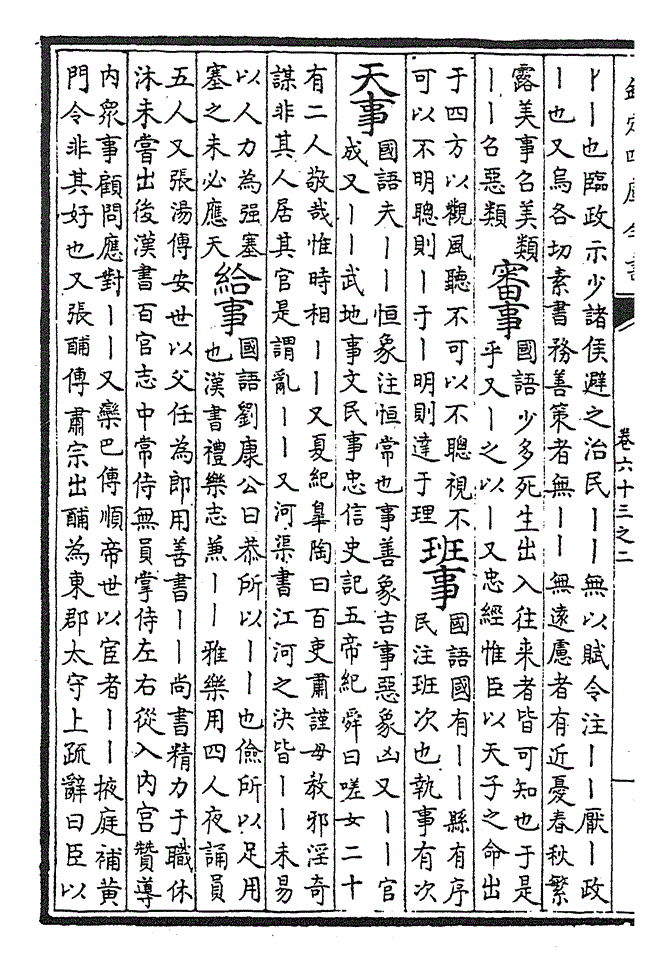 欽定四庫全書
卷六十三之二
丨丨也臨政示少諸侯避之治民丨丨無以賦令注丨丨厭丨政
丨也又烏各切素書務善策者無丨丨無遠慮者有近憂春秋繁
露美事名美類
丨丨名惡類
審事
國語少多死生出入往来者皆可知也于是
乎又丨之以丨又忠經惟臣以天子之命出
于四方以觀風聽不可以不聰視不
可以不明聰則丨于丨明則達于理
班事
國語國有丨丨縣有序
民注班次也執事有次
天事
國語夫丨丨恒象注恒常也事善象吉事惡象凶又丨丨官
成又丨丨武地事文民事忠信史記五帝紀舜曰嗟女二十
有二人敬哉惟時相丨丨又夏紀臯陶曰百吏肅謹毋教邪淫奇
謀非其人居其官是謂亂丨丨又河渠書江河之決皆丨丨未易
以人力為强塞
塞之未必應天
給事
國語劉康公曰恭所以丨丨也儉所以足用
也漢書禮樂志兼丨丨雅樂用四人夜誦員
五人又張湯傳安世以父任為郎用善書丨丨尚書精力于職休
沐未嘗出後漢書百官志中常侍無員掌侍左右從入内宫贊導
内衆事顧問應對丨丨又欒巴傳順帝世以宦者丨丨掖庭補黄
門令非其好也又張酺傳肅宗出酺為東郡太守上疏辭曰臣以